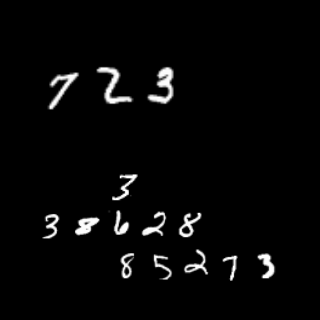 7 2 3
3
3 8 6 2 8
8 5 2 7 3